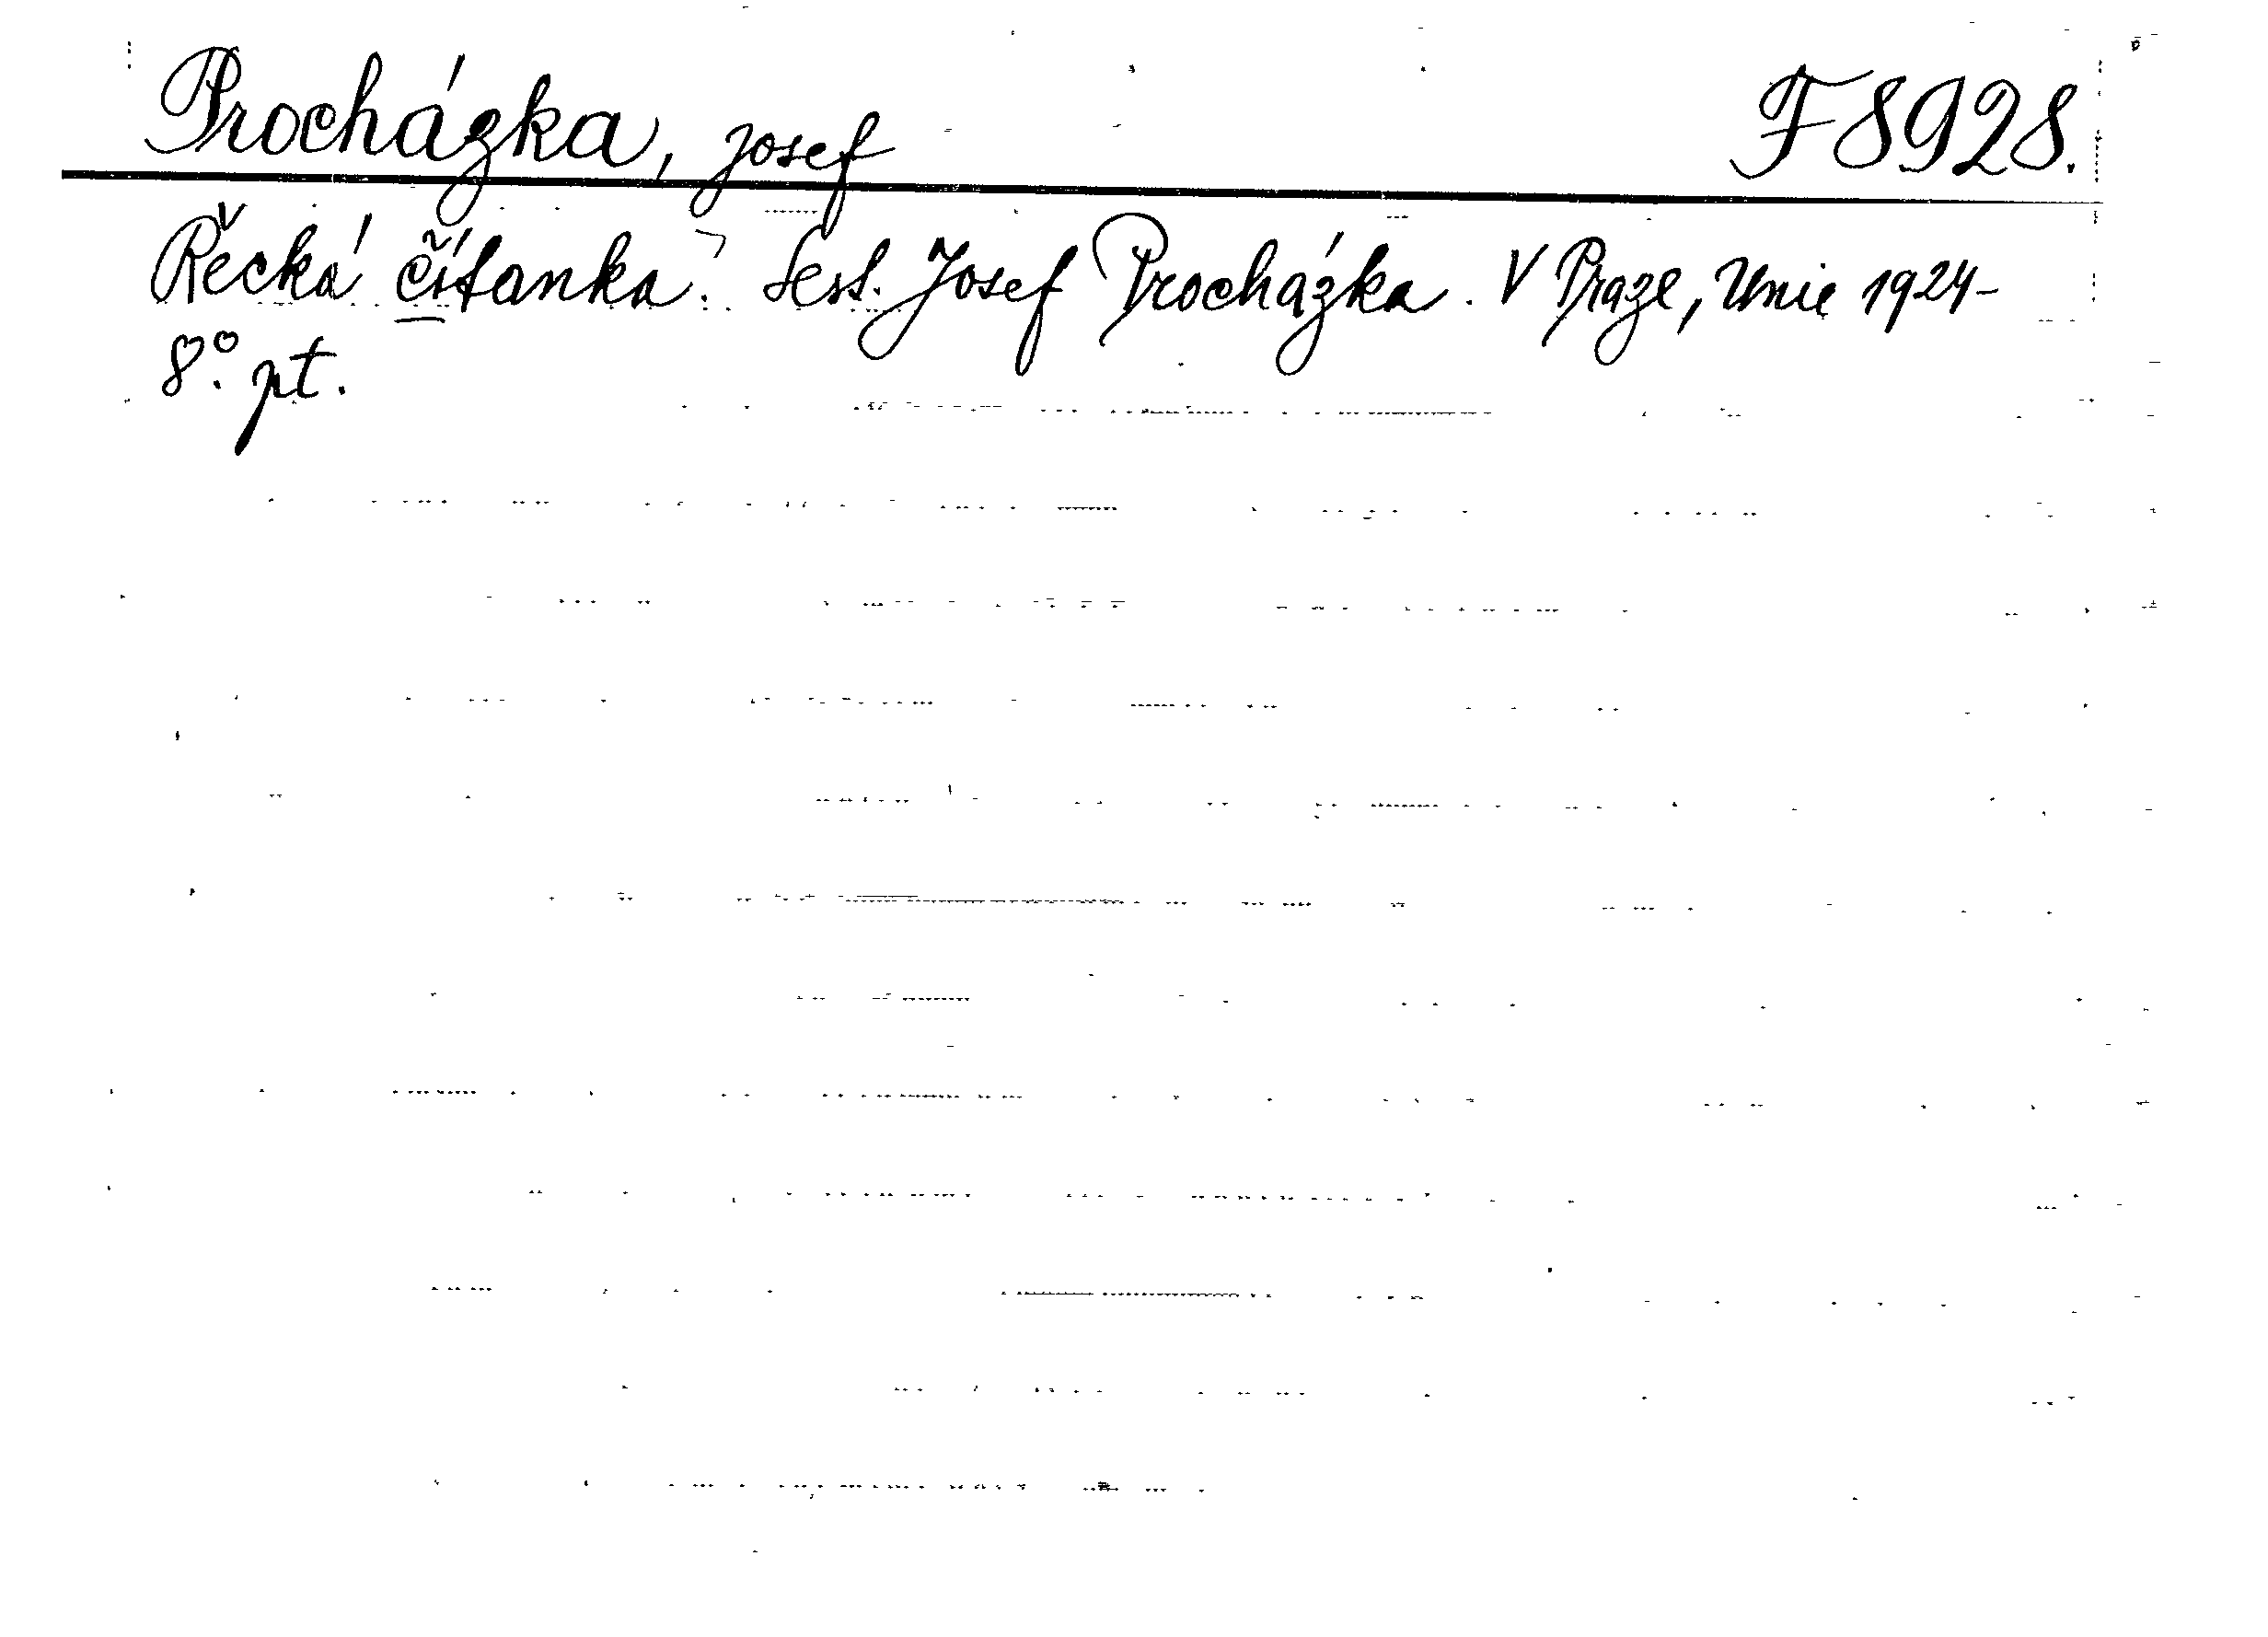 Procházka, Josef F 8928.
Řecká čítanka. Sest. Josef Procházka. V Praze, Unie 1924-
8°. pt.